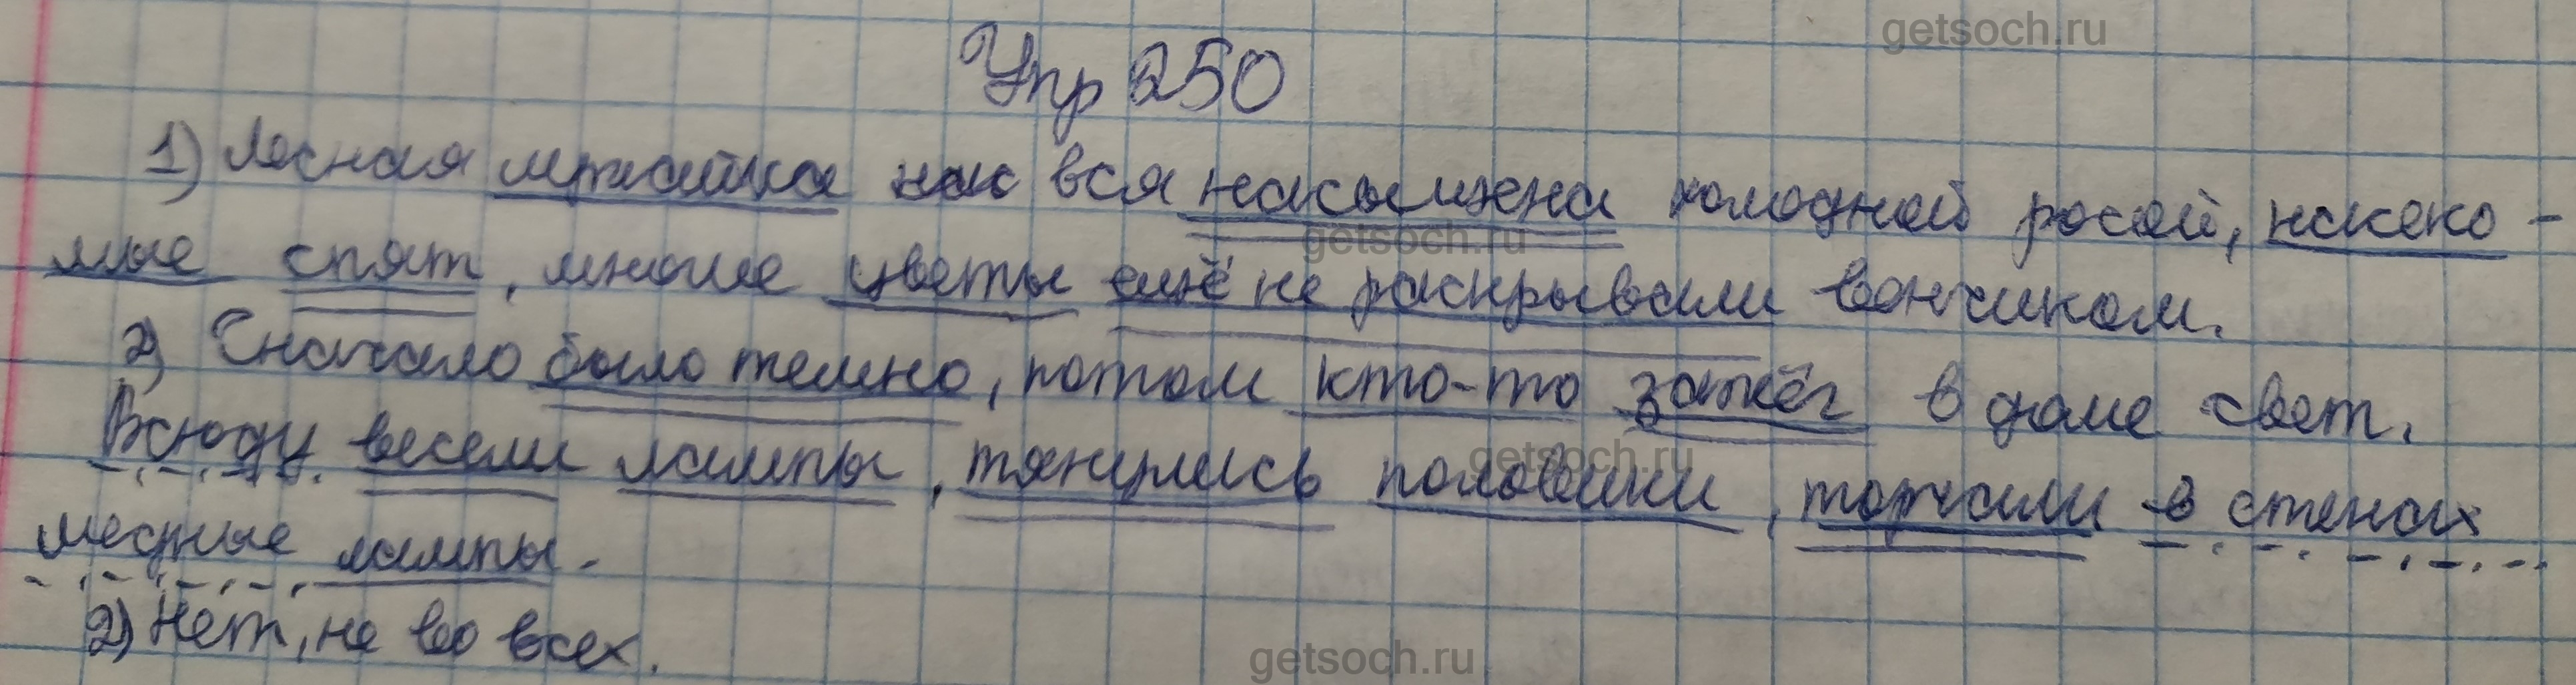 getsoch.ru
Упр 250
1) Лесная мржайка как вся насыщена холодной росой, насеко-
getsoch.ru
мые спят, многие цветы ещё не раскрывали вончиком.
2) Сначало было темно, потом кто-то зажёг в доме свет.
Всюду весели лампы, тянулись половики, торчали в стенах
getsoch.ru
медные лампы.
2) Нет, не во всех.
getsoch.ru